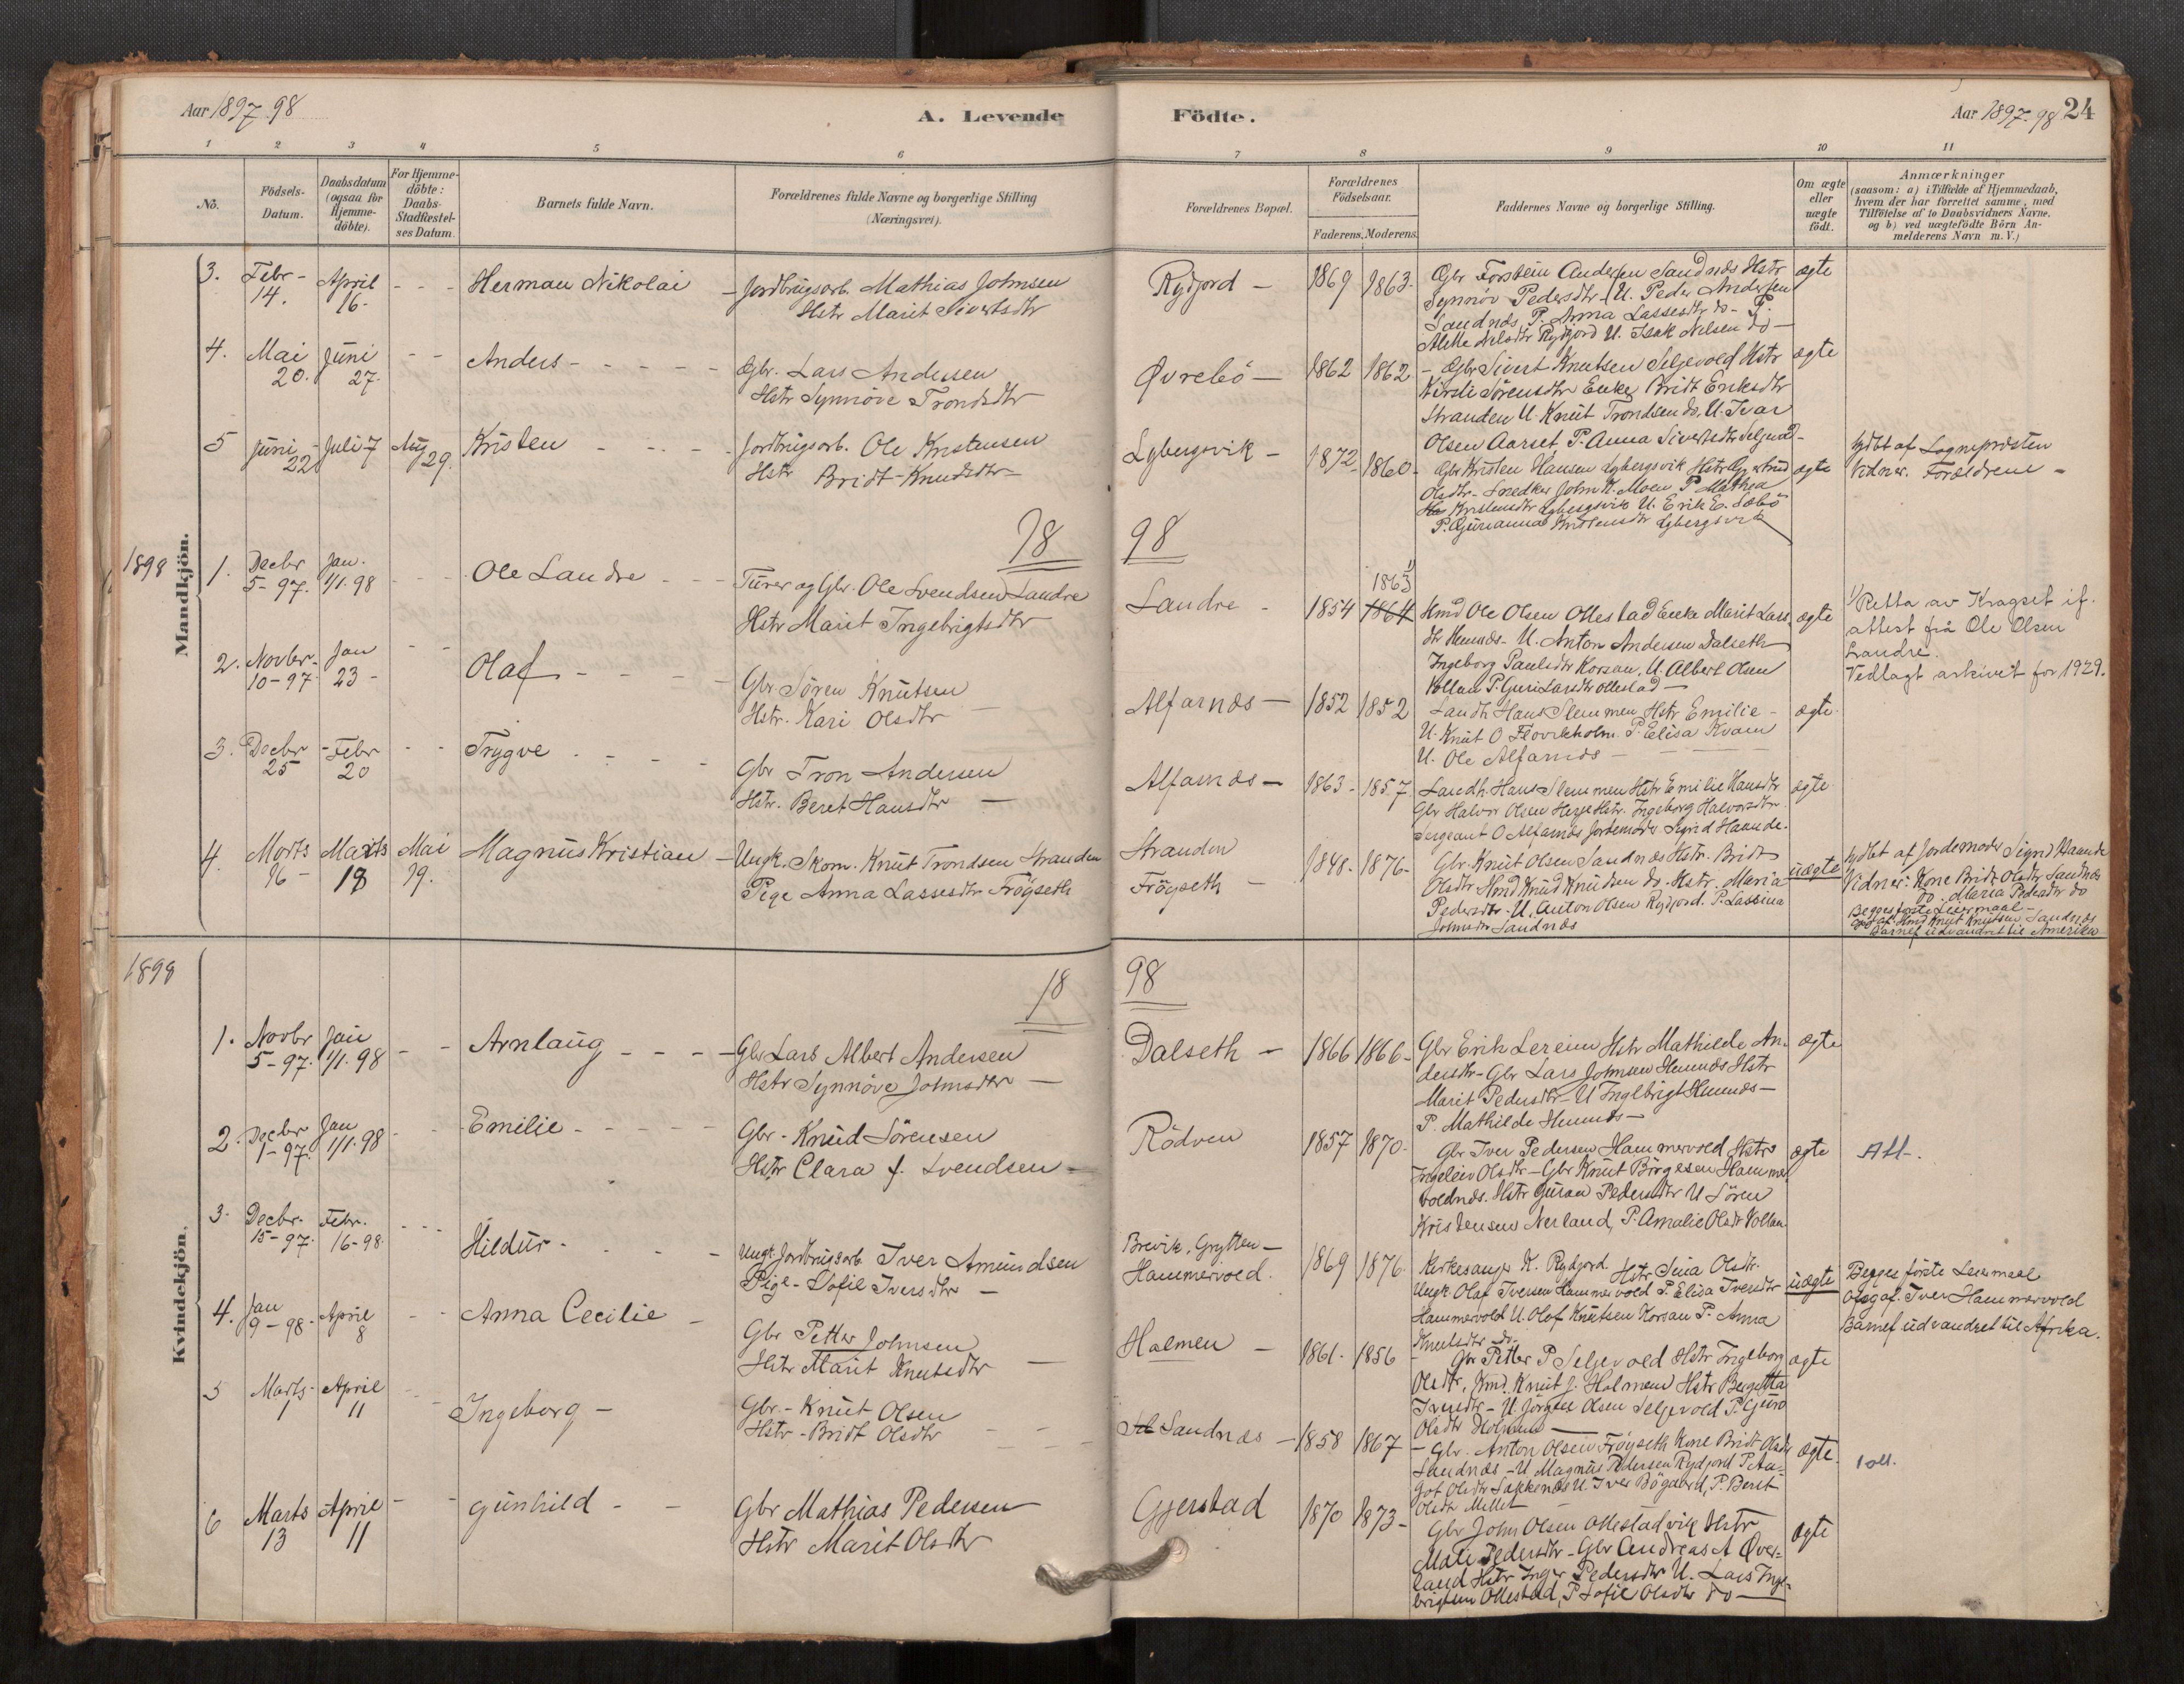 Aar 1897-98
A. Levende
Födte.
Aar 1897-98 24
1 2 3 4 5 6 7 8 9 10 11
No.
Födsels-Datum.
Daabsdatum (ogsaa for Hjemme-döbte).
For Hjemme-döbte: Daabs-Stadfæstel-ses Datum.
Barnets fulde Navn.
Forældrenes fulde Navne og borgerlige Stilling (Næringsvei).
Forældrenes Bopæl.
Forældrenes Födselsaar.
Faderens. Moderens.
Faddernes Navne og borgerlige Stilling.
Om ægte eller uægte födt.
Anmærkninger
(saasom: a) i Tilfælde af Hjemmedaab,
hvem der har forrettet samme, med
Tilföielse af to Daabsvidners Navne.
og b) ved uægtefödte Börn An-
melderens Navn m. V.)
Mandkjön.
3. Febr - 14. April 16 - - - - Herman Nikolai - Jordbrugsarb. Mathias Johnsen
Hstr Marit Sivertsdtr
Rydjord - 1869 1863 -
Gbr Torstein Andersen Sandnæs Hstr
Synnöv Pedersdtr - U. Peder Andersen
Sandnæs P. Anna Lassesdtr do - P.
Alette Nelsdtr Rydjord U. Isak Nelsen do -
ægte
4. Mai 20. Juni 27. - - Anders - - - - - Gbr. Lars Andersen
Hstr Synnöve Trondsdtr
Øvrebö - 1862 1862
- Gbr Sivert Knutsen Seljevold Hstr
Kirsti Sörensdtr Enke Bridt Eriksdtr
Stranden U. Knut Trondsen do. U. Ivar
Olsen Aarset, P. Anna Sivertsdtr Seljevold -
ægte
5 Juni - 22 Juli 7 Aug 29. Kristen - - - - Jordbrugsarb. Ole Kristensen
Hstr Bridt Knudsdtr -
Lybergsvik - 1872 1860 -
Gbr Kristen Hansen Lybergsvik Hstr Gjertrud
Olsdtr - Snedker John K. Moen P Mathea
Kristensdtr Lybergsvik U. Erik E. Sæbö
P. Gjurianna Kristensdtr Lybergsvik
ægte
Hjdbt af Sognepræsten
Vidner. Forældrene -
18 98
1898 1. Decbr 5 - 97. Jan. 1/1. 98 - - - Ole Landre - - - Turer og Gbr. Ole Svendsen Landre
Hstr Marit Ingebrigtsdtr
Landre - 1854 1864 1863 1)
Kmd Ole Olsen Ollestad Enke Marit Lars
dtr Hemnæs - U. Anton Andersen Dalseth
Ingeborg Paulsdtr Korsan, U. Albert Olsen
Vollan P. Guri Larsdtr Ollestad -
ægte
1) Retta av Kragset if.
attest frå Ole Olsen
Landre.
Vedlagt arkivet for 1929.
2. Novbr - 10 - 97 Jan 23 - - - Olaf - - - - - Gbr Sören Knutsen
Hstr. Kari Olsdtr -
Alfarnæs - 1852 1852
Landh Hans Slemmen Hstr Emilie -
U. Knut O Flovikholm. P. Elisa Kvam
U. Ole Alfarnæs -
ægte.
3. Decbr 25 - Febr 20 - - Trygve - - - - Gbr Tron Andersen
Hstr. Beret Hansdtr -
Alfarnæs - 1863 - 1857.
Landh. Hans Slemmen Hstr Emilie Hansdtr
Gbr Halvor Olsen Herje Hstr. Ingeborg Halvorsdtr
Sergeant O Alfarnæs Jordemoder Sigrid Haande.
ægte
4. Marts 16 - Marts 18 Mai 19. Magnus Kristian - Ungk. Skom. Knut Trondsen Stranden
Pige Anna Lassesdtr Fröyseth
Stranden
Fröyseth - 1848 - 1876 -
Gbr. Knut Olsen Sandnæs Hstr. Bridt
Olsdtr Kmd Knud Knudsen do. Hstr. Maria
Pedersdtr - U. Anton Olsen Rydjord. P. Lassina
Johnsdtr Sandnæs
uægte
Hjdbt af Jordemoder Sigrid Haande
Vidner: Kone Bridt Olsdtr Sandnæs
do. Maria Pedersdtr do
Begges förste Leiermaal -
Opg af. Kmd Knut Knutsen Sandnæs
Barnef. udvandret til Amerika
Kvindekjön.
1898
18 98
1. Novbr 5 - 97. Jan 1/1. 98 - - Arnlaug - - - - Gbr Lars Albert Andersen
Hstr Synnöve Johnsdtr -
Dalseth - 1866 1866 -
Gbr Erik Lereim Hstr Mathilde An-
dersdtr - Gbr Lars Johnsen Hemnæs Hstr
Marit Pedersdtr - U Ingebrigt Hemnæs -
P. Mathilde Hemnæs -
ægte
2. Decbr 1 - 97. Jan 1/1. 98 - - Emilie - - - - - Gbr - Knud Sörensen
Hstr Clara f. Svendsen -
Rödven 1857 1870 -
Gbr Iver Pedersen Hammervold Hstr
Ingeleiv Olsdtr - Gbr Knut Börgesen Hammer
voldnæs. Hstr Guron Pedersdtr U Sören
Kristensen Nerland, P. Amalie Olsdtr Vollan
ægte
Att.
3. Decbr. 15 - 97. Febr. 16 - 98. - - - Hildur - - - - Ungk. Jordbrugsarb. Iver Amundsen
Pige - Sofie Iversdtr -
Brevik, Grytten -
Hammervold. 1869 1876.
Kirkesanger K. Rydjord. Hstr Sina Olsdtr.
Ungk. Olaf Iversen Hammervold P. Elisa Iversdtr
Hammervold U. Olof Knutsen Korsan P. Anna
Knutsdtr do.
uægte
Begges förste Leiermaal
Opgaf. Iver Hammervold
Barnef udvandret til Afrika.
4. Jan 9 - 98 - April 8 - - Anna Cecilie - Gbr Petter Johnsen
Hstr Marit Knutsdtr -
Holmen - 1861 - 1856
Gbr Petter P Seljevold Hstr Ingeborg
Olsdtr, Kmd. Knut J. Holmem Hstr Bergitta
Iversdtr - U. Jörgen Olsen Seljevold P. Guro
Olsdtr Holmem -
ægte
5 Marts - 1 April 11 - - Ingeborg - Gbr. - Knut Olsen
Hstr - Bridt Olsdtr - -
Sandnæs - 1858 1867
- Gbr. Anton Olsen Fröyseth Kone Bridt Olsdtr
Sandnæs - U. Magnus Pedersen Rydjord P.
Olsdtr U. Iver Bögaard, P. Berit
Olsdtr Millet
ægte.
1 att.
6 Marts 13 April 11 - - Gunhild - - Gbr Mathias Pedersen
Hstr Marit Olsdtr
Gjerstad 1870 1873 -
Gbr John Olsen Ollestadvik Hstr
Mali Pedersdtr - Gbr Andreas A Över-
land Hstr Inger Pedersdtr U. Lars Inge-
brigtsen Ollestad, P Sofie Olsdtr do -
ægte